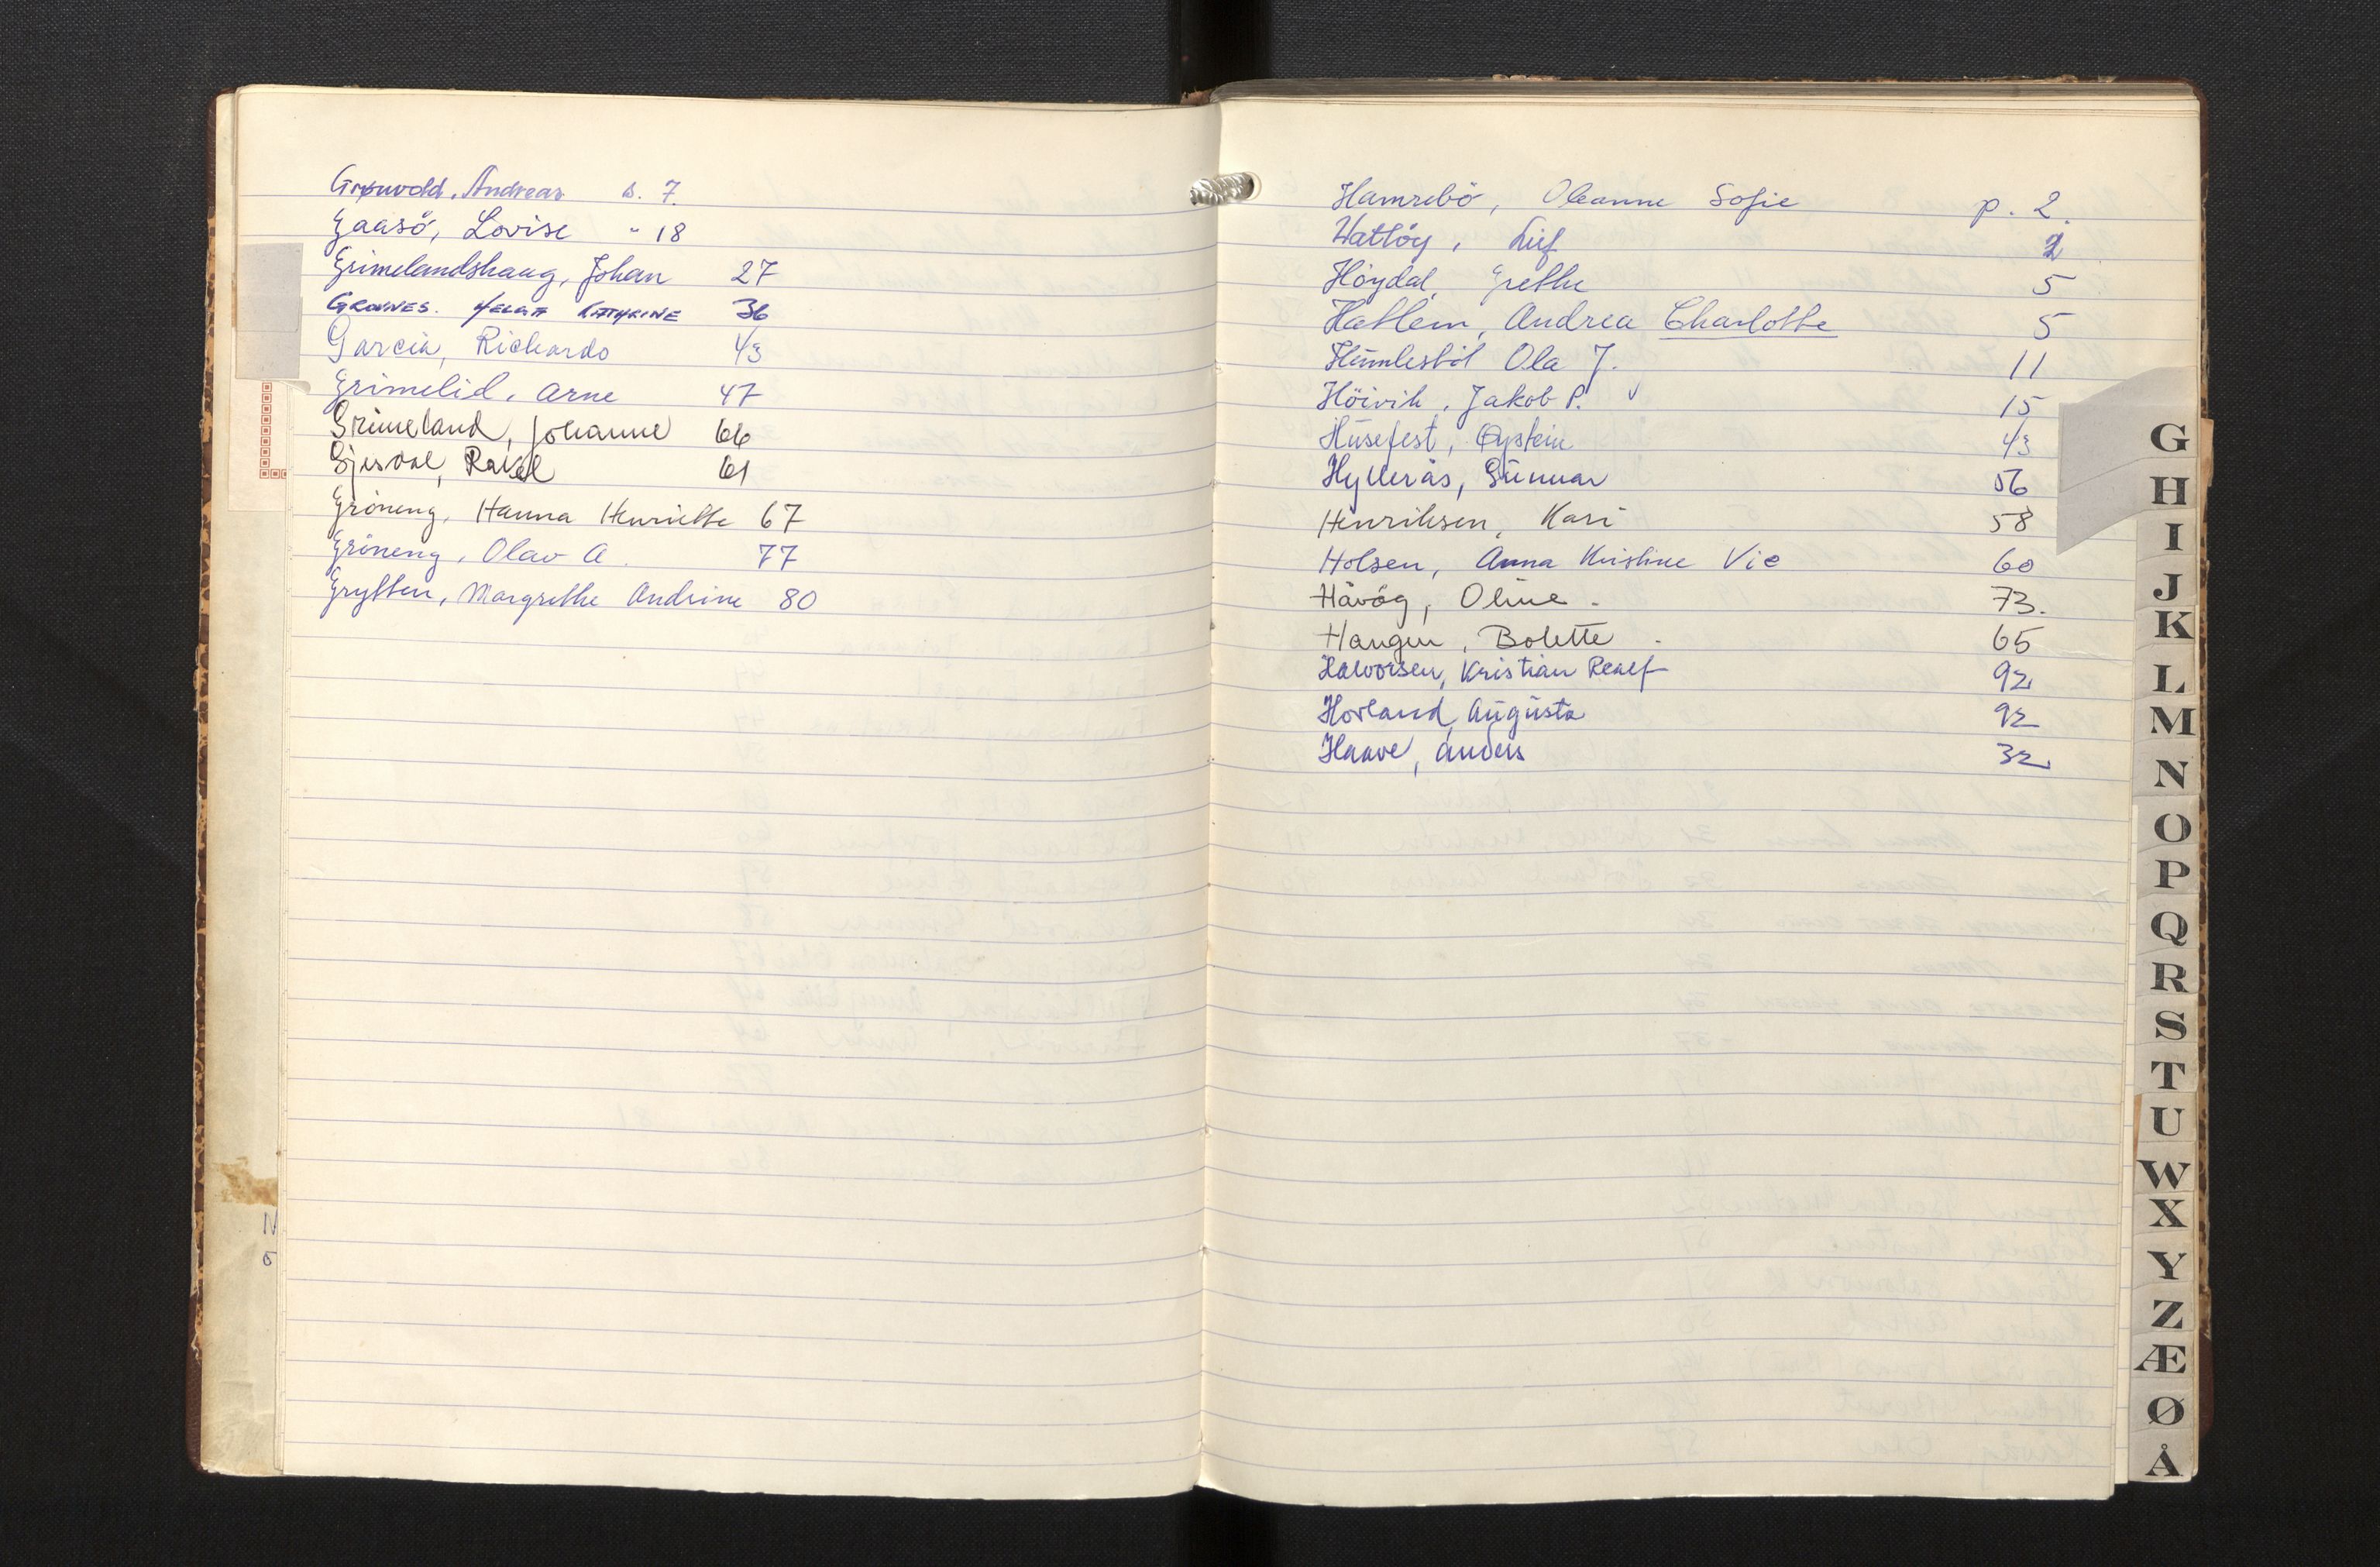 Grønvold, Andreas s. 7.
Gaasö, Lovise " 18
Grimelandshaug, Johan 27
GROVNES. HELGA KATHRINE 36
Garcia, Richardo 43
Grimelid, Arne 47
Grimeland, Johanne 66
Gjesdal, Rakel 61
Gröneng, Hanna Henriette 67
Gröneng, Olav A. 77
Grytten, Margrethe Andrine 80
N
ö
Hamrebö, Oleanne Sofie p. 2.
Hatlöy, Leif 2
Höydal, Grethe 5
Hatlem, Andrea Charlotte 5
Humlestöl Ola J. 11
Höivik, Jakob P. 15
Husefest, Øystein 43
Hyllerås, Gunnar 56
Henriksen, Kari 58
Holsen, Anna Kristine Vie 60
Håvåg, Oline. 73.
Haugen, Bolette. 65
Halvorsen, Kristian Realf 92
Horland, Augusta 92
Haave, Anders 32
G
H
I
J
K
L
M
N
O
P
Q
R
S
T
U
W
X
Y
Z
Æ
Ø
Å